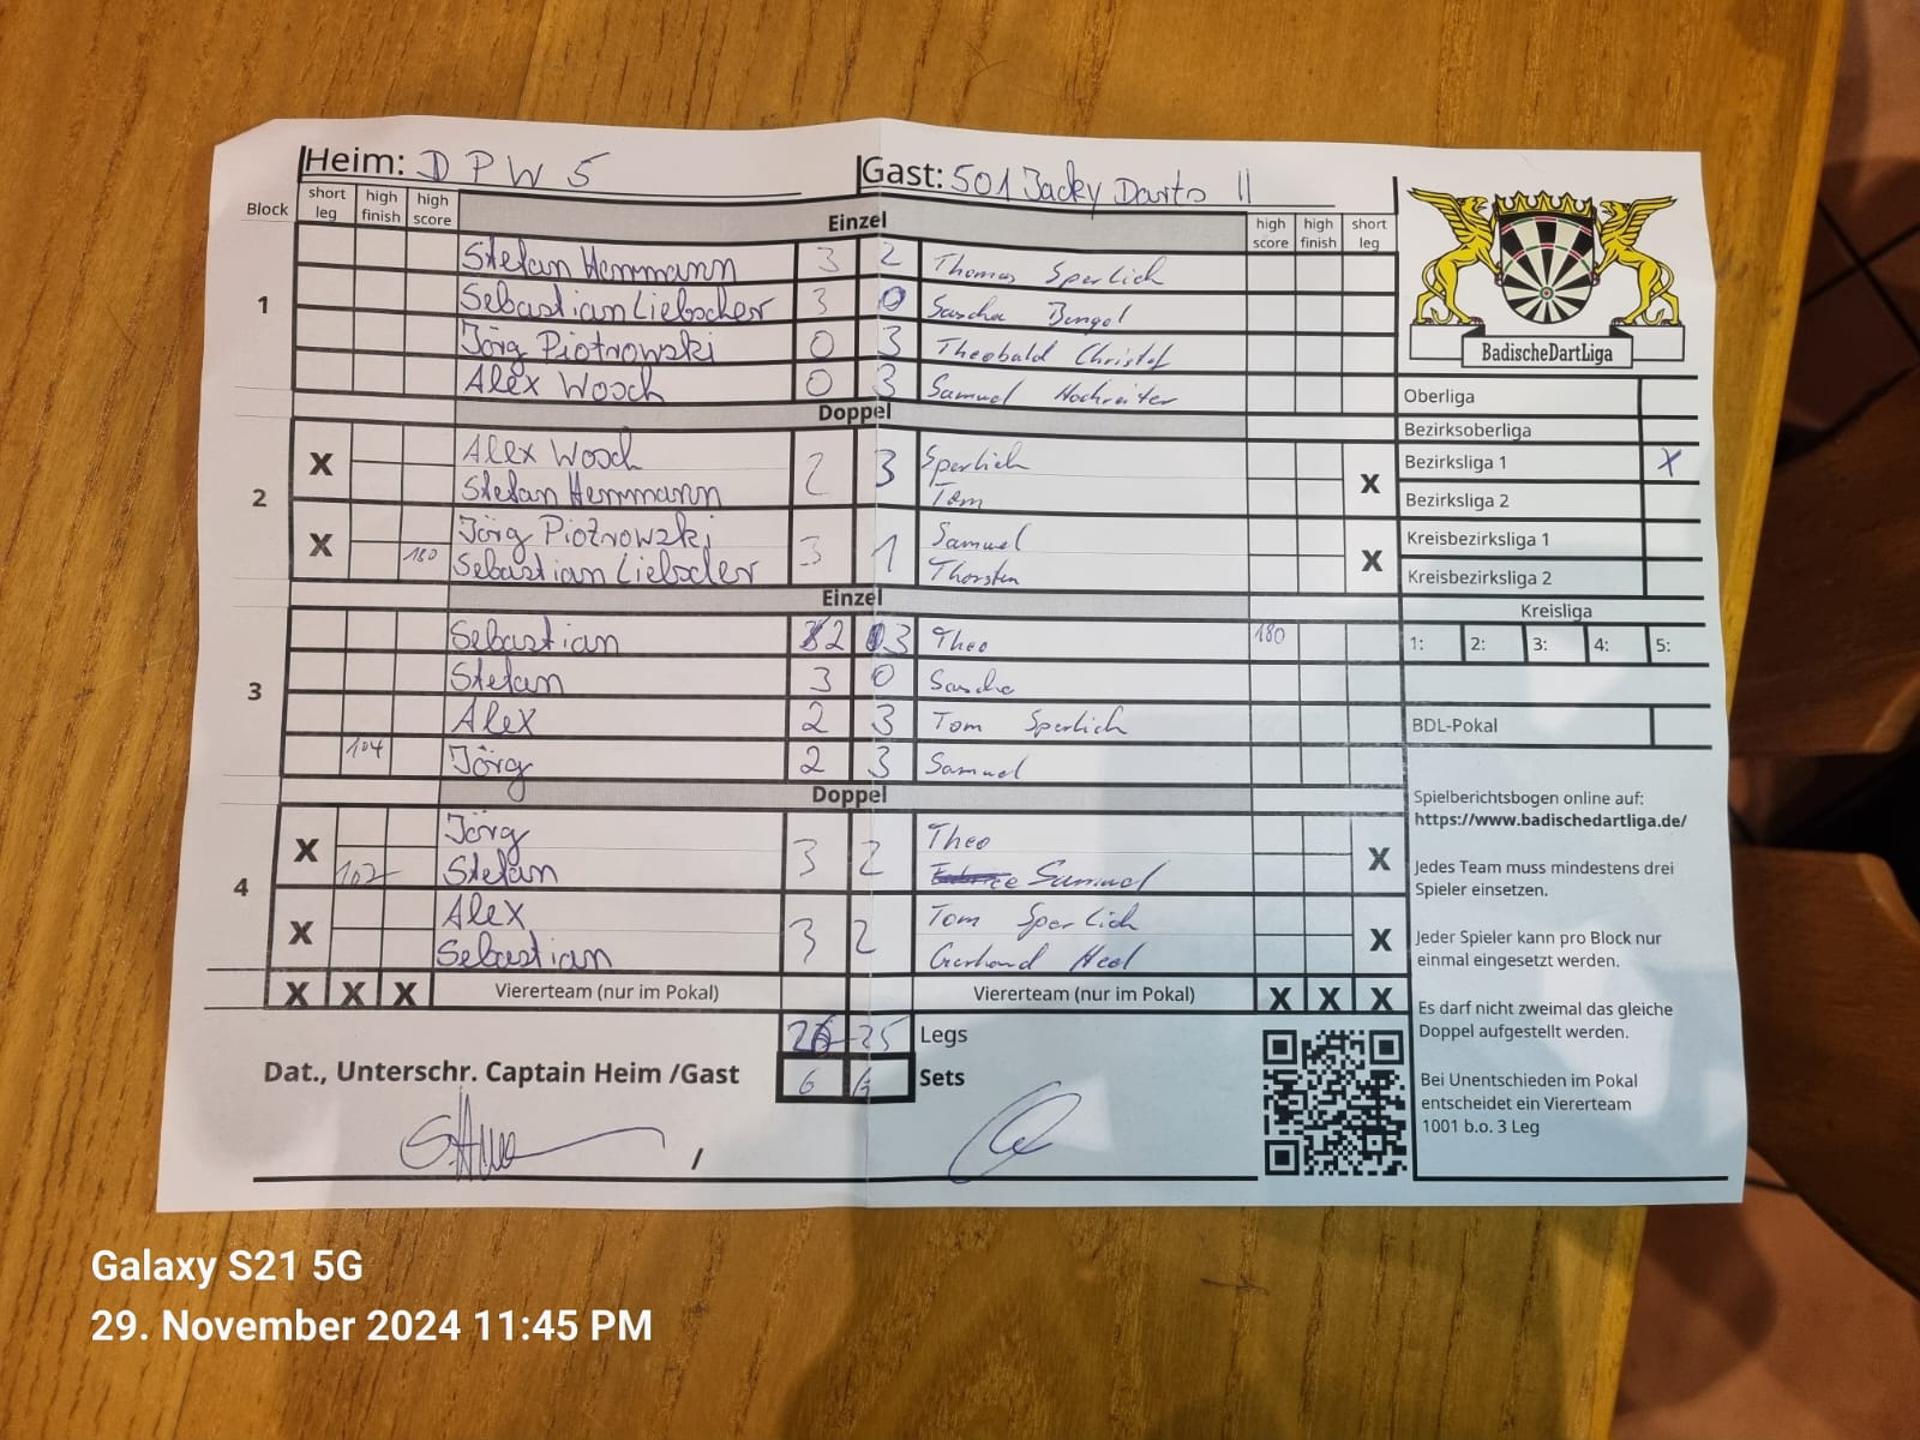 Heim: DPW 5 Gast: 501 Jacky Darts II
Block short leg high finish high score Einzel high score high finish short leg
1
Stefan Herrmann 3 2 Thomas Sperlich
Sebastian Liebscher 3 0 Sascha
Jörg Piotrowski 0 3 Theobald Christof
Alex Wosch 0 3 Samuel Hochreiter
Doppel
2
X Alex Wosch 2 3 Sperlich X
Stefan Herrmann Tom
X Jörg Piotrowski 3 1 Samuel X
180 Sebastian Liebscher Thorsten
Einzel
3
Sebastian 2 3 Theo 180
Stefan 3 0 Sascha
Alex 2 3 Tom Sperlich
104 Jörg 2 3 Samuel
Doppel
4
X Jörg 3 2 Theo X
102 Stefan Samuel
X Alex 3 2 Tom Sperlich X
Sebastian Gerhard
X X X Viererteam (nur im Pokal) Viererteam (nur im Pokal) X X X
25 Legs
Dat., Unterschr. Captain Heim /Gast 6 4 Sets
/
BadischeDartLiga
Oberliga
Bezirksoberliga
Bezirksliga 1 X
Bezirksliga 2
Kreisbezirksliga 1
Kreisbezirksliga 2
Kreisliga
1: 2: 3: 4: 5:
BDL-Pokal
Spielberichtsbogen online auf:
https://www.badischedartliga.de/
Jedes Team muss mindestens drei
Spieler einsetzen.
Jeder Spieler kann pro Block nur
einmal eingesetzt werden.
Es darf nicht zweimal das gleiche
Doppel aufgestellt werden.
Bei Unentschieden im Pokal
entscheidet ein Viererteam
1001 b.o. 3 Leg
Galaxy S21 5G
29. November 2024 11:45 PM